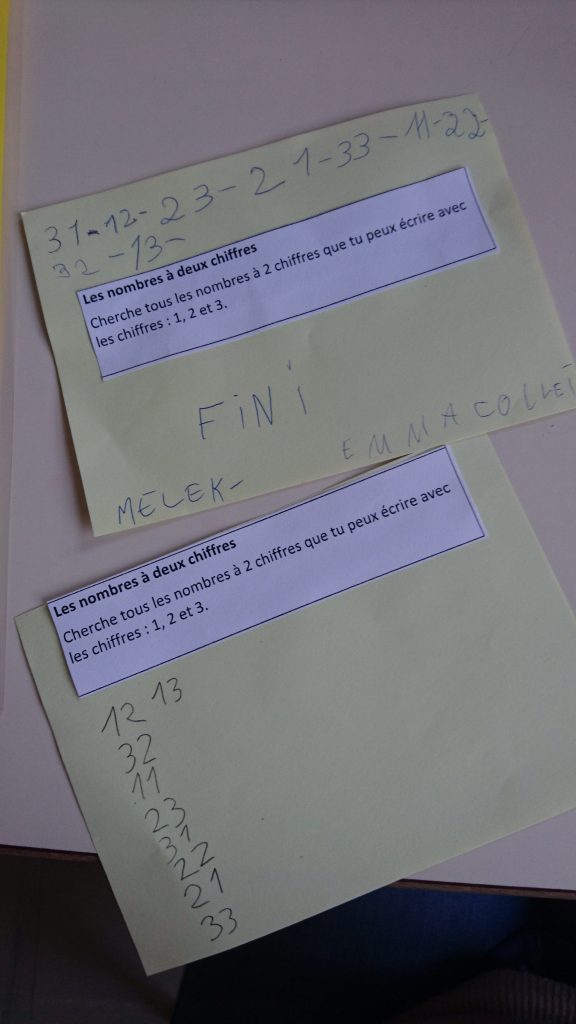 31-12-23-21-33-11-22-
32-13-
Les nombres à deux chiffres
Cherche tous les nombres à 2 chiffres que tu peux écrire avec
les chiffres : 1, 2 et 3.
FiNi
EMMA COLLEI
MELEK-
Les nombres à deux chiffres
Cherche tous les nombres à 2 chiffres que tu peux écrire avec
les chiffres : 1, 2 et 3.
12 13
32
11
23
31
22
21
33